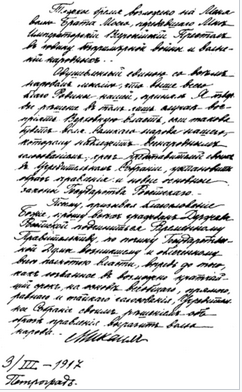 Тяжкое бремя возложено на Меня
волею Брата Моего, передавшего Мне
Императорский Всероссийский Престол
в годину беспримерной войны и волне-
ний народных.
Одушевленный единою со всем
народом мыслью, что выше всего
благо Родины нашей, принял Я твер-
дое решение в том лишь случае вос-
принять Верховную власть, если такова
будет воля великого народа нашего,
которому надлежит всенародным
голосованием, чрез представителей своих
в Учредительном Собрании, установить
образ правления и новые основные
законы Государства Российского.
Посему, призывая благословение
Божие, прошу всех граждан Державы
Российской подчиниться Временному
Правительству, по почину Государствен-
ной Думы возникшему и облеченному
всею полнотою власти, впредь до того,
как созванное в возможно кратчай-
ший срок, на основе всеобщего, прямого,
равного и тайного голосования, Учредитель-
ное Собрание своим решением об
образе правления выразит волю
народа.
Михаил
3/III - 1917
Петроград.